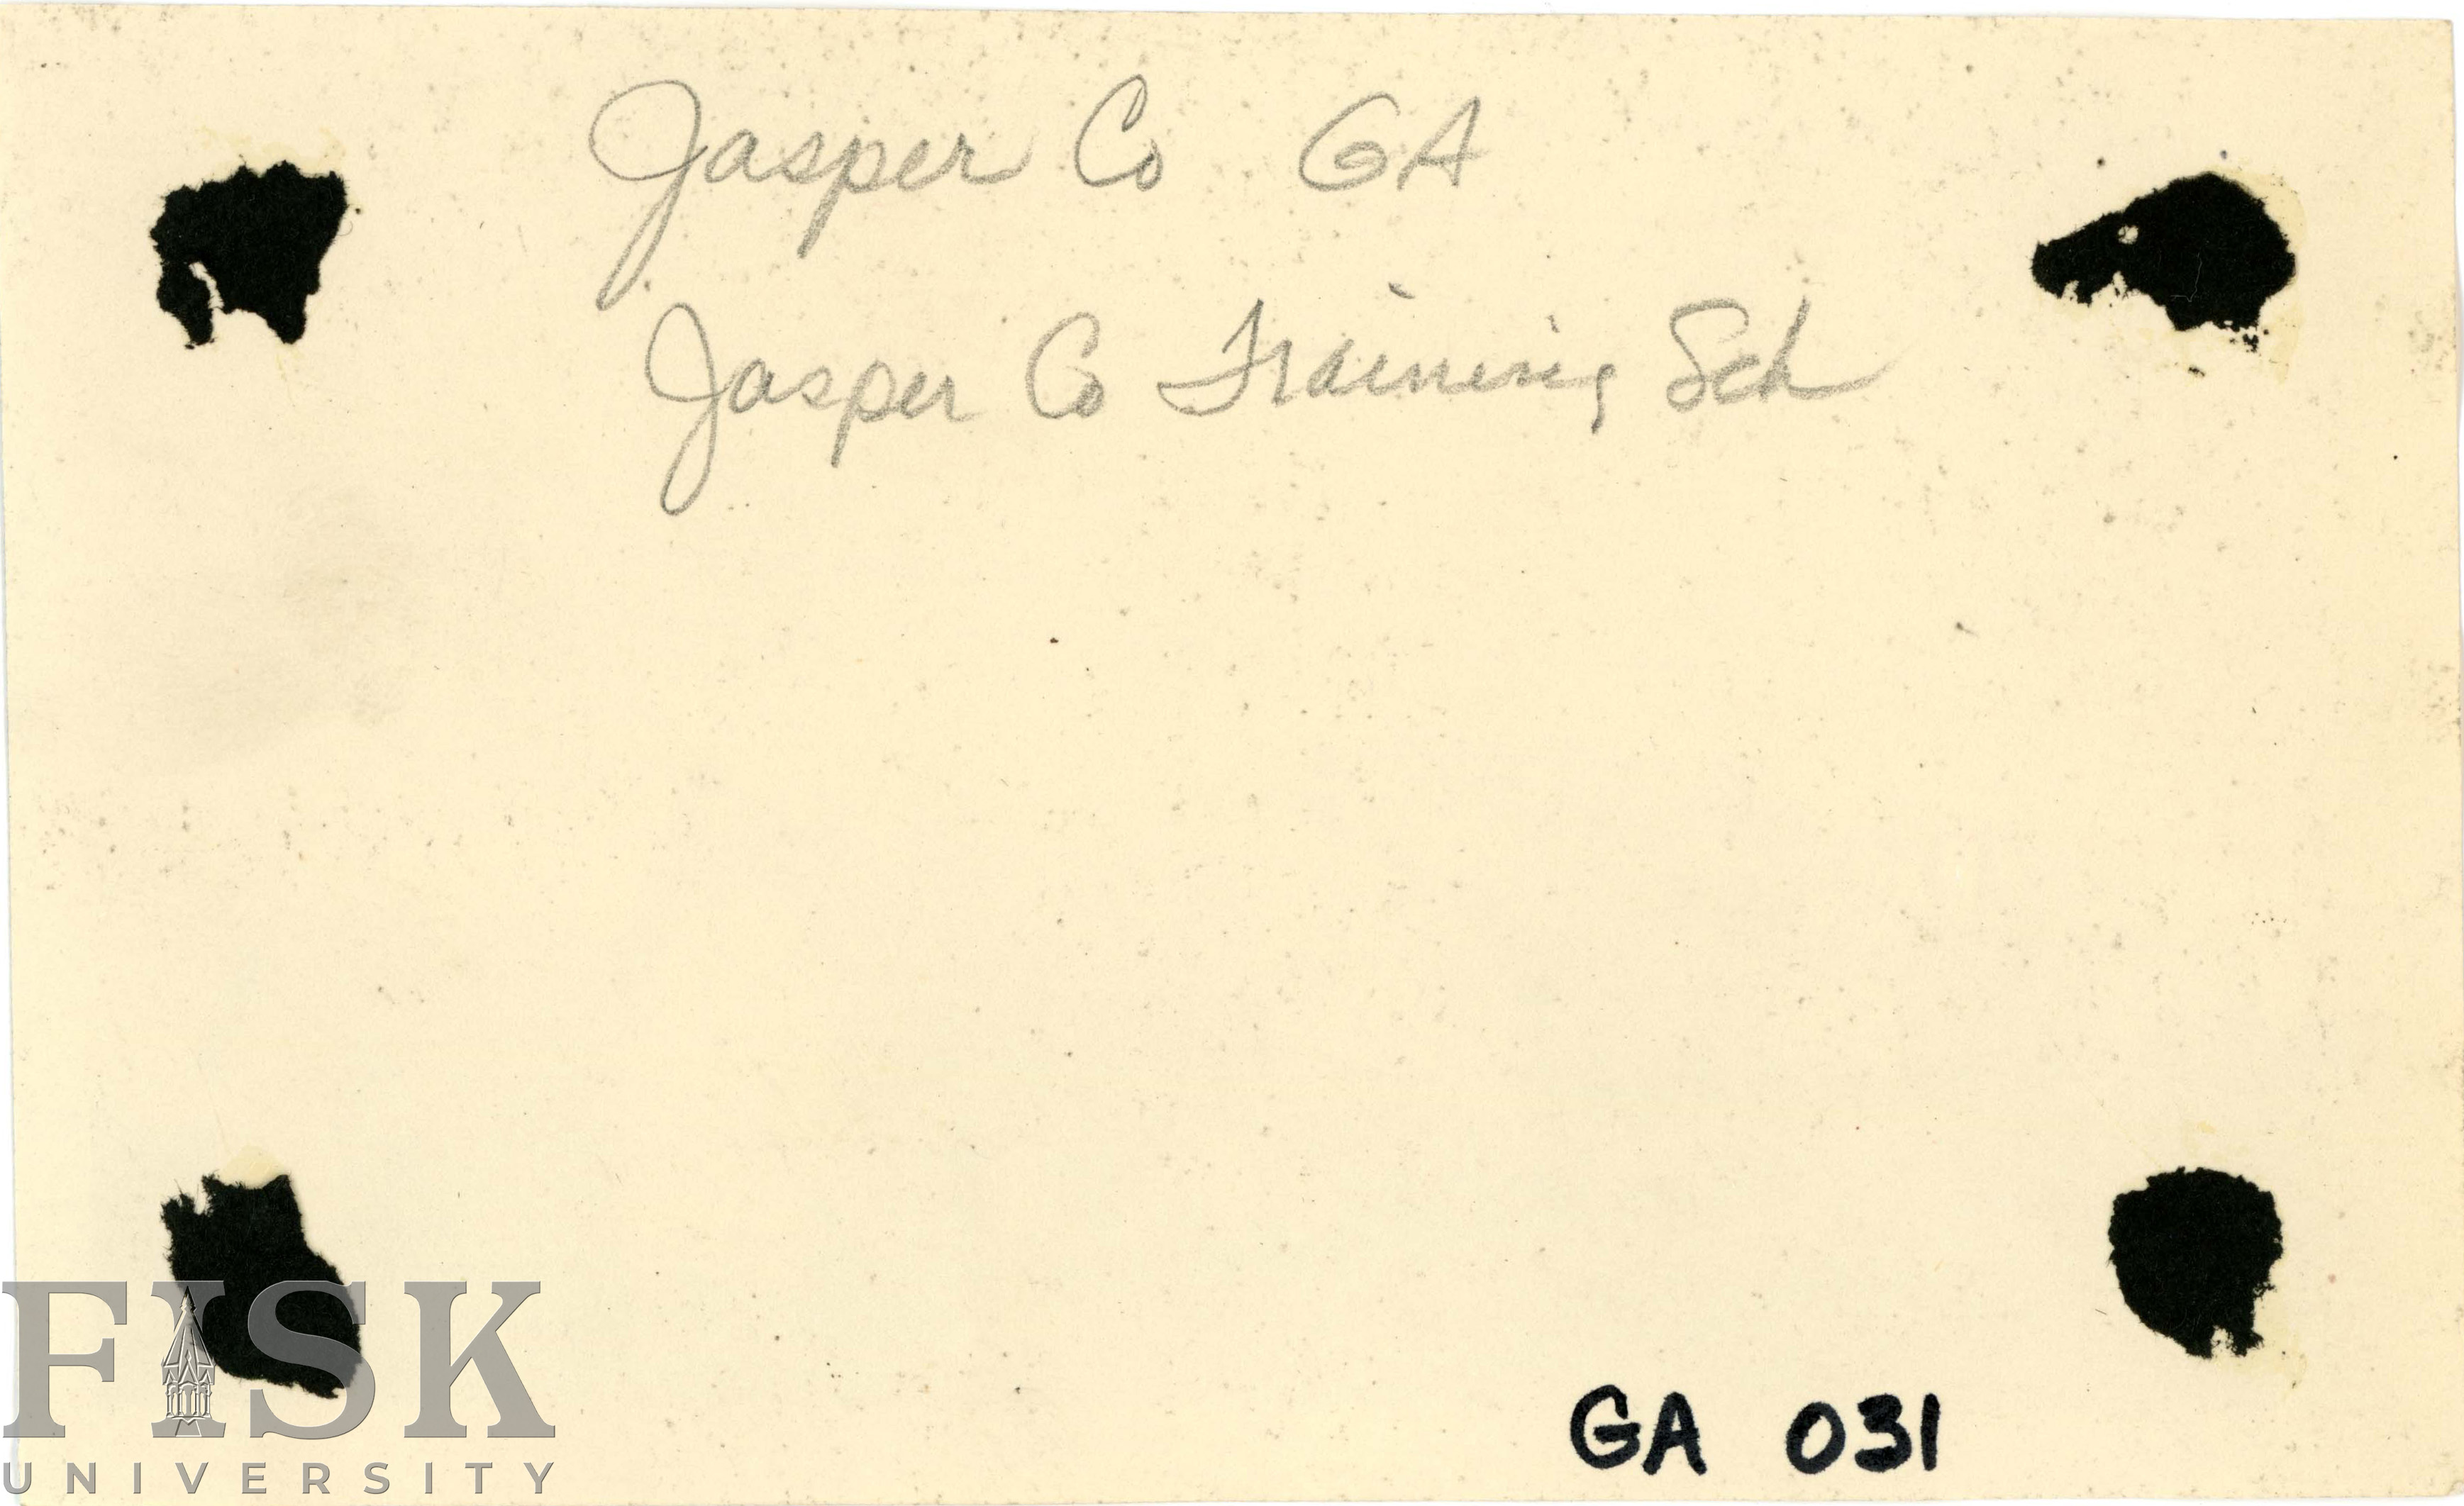 Jasper Co GA
Jasper Co Training Sch
GA 031
FISK
UNIVERSITY